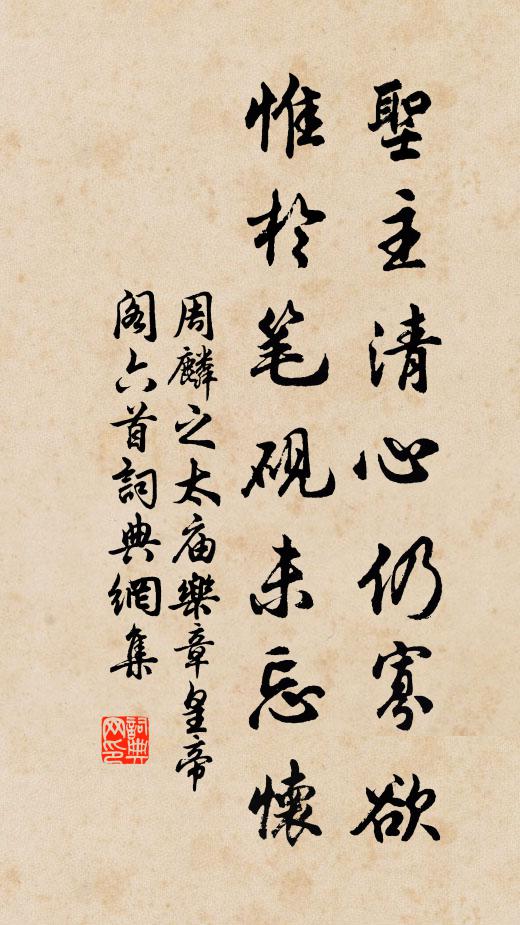 聖主清心仍寡欲
惟於笔硯未忘懷
周麟之太庙樂章皇帝
阁六首詞典網集
詞典網印